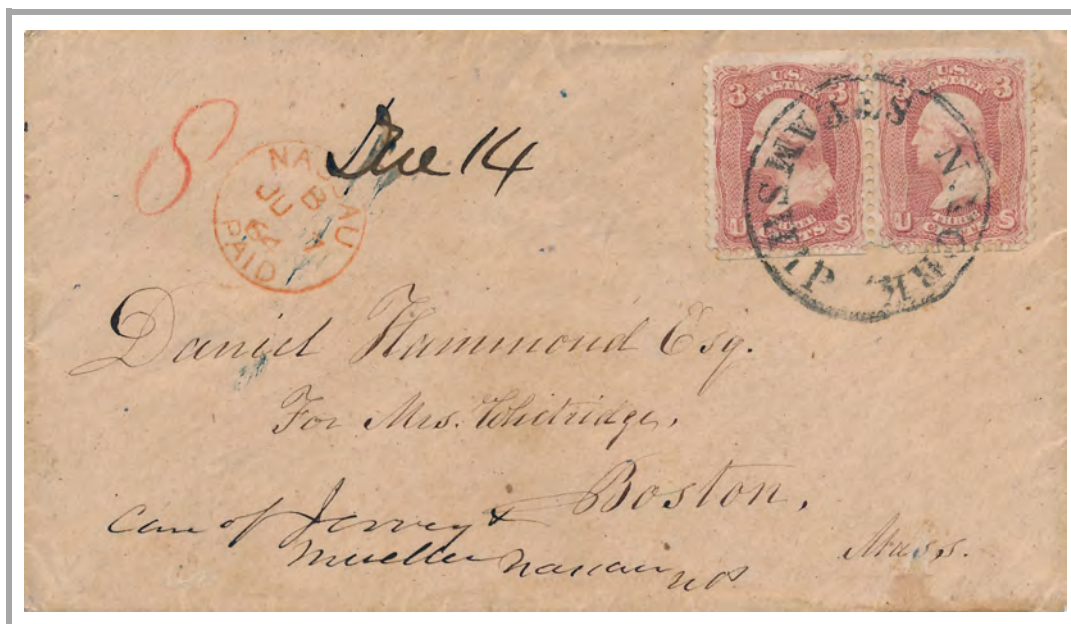 8
Due 14
NASSAU
B
JU 7
64
PAID
3 U.S. POSTAGE 3
U THREE CENTS S
3 U.S. POSTAGE 3
U THREE CENTS S
N. YORK. STEAMSHIP
Daniel Hammond Esq.
For Mrs. Whitridge,
Boston,
Mass.
Care of Jervey &
Mueller Nassau
N P